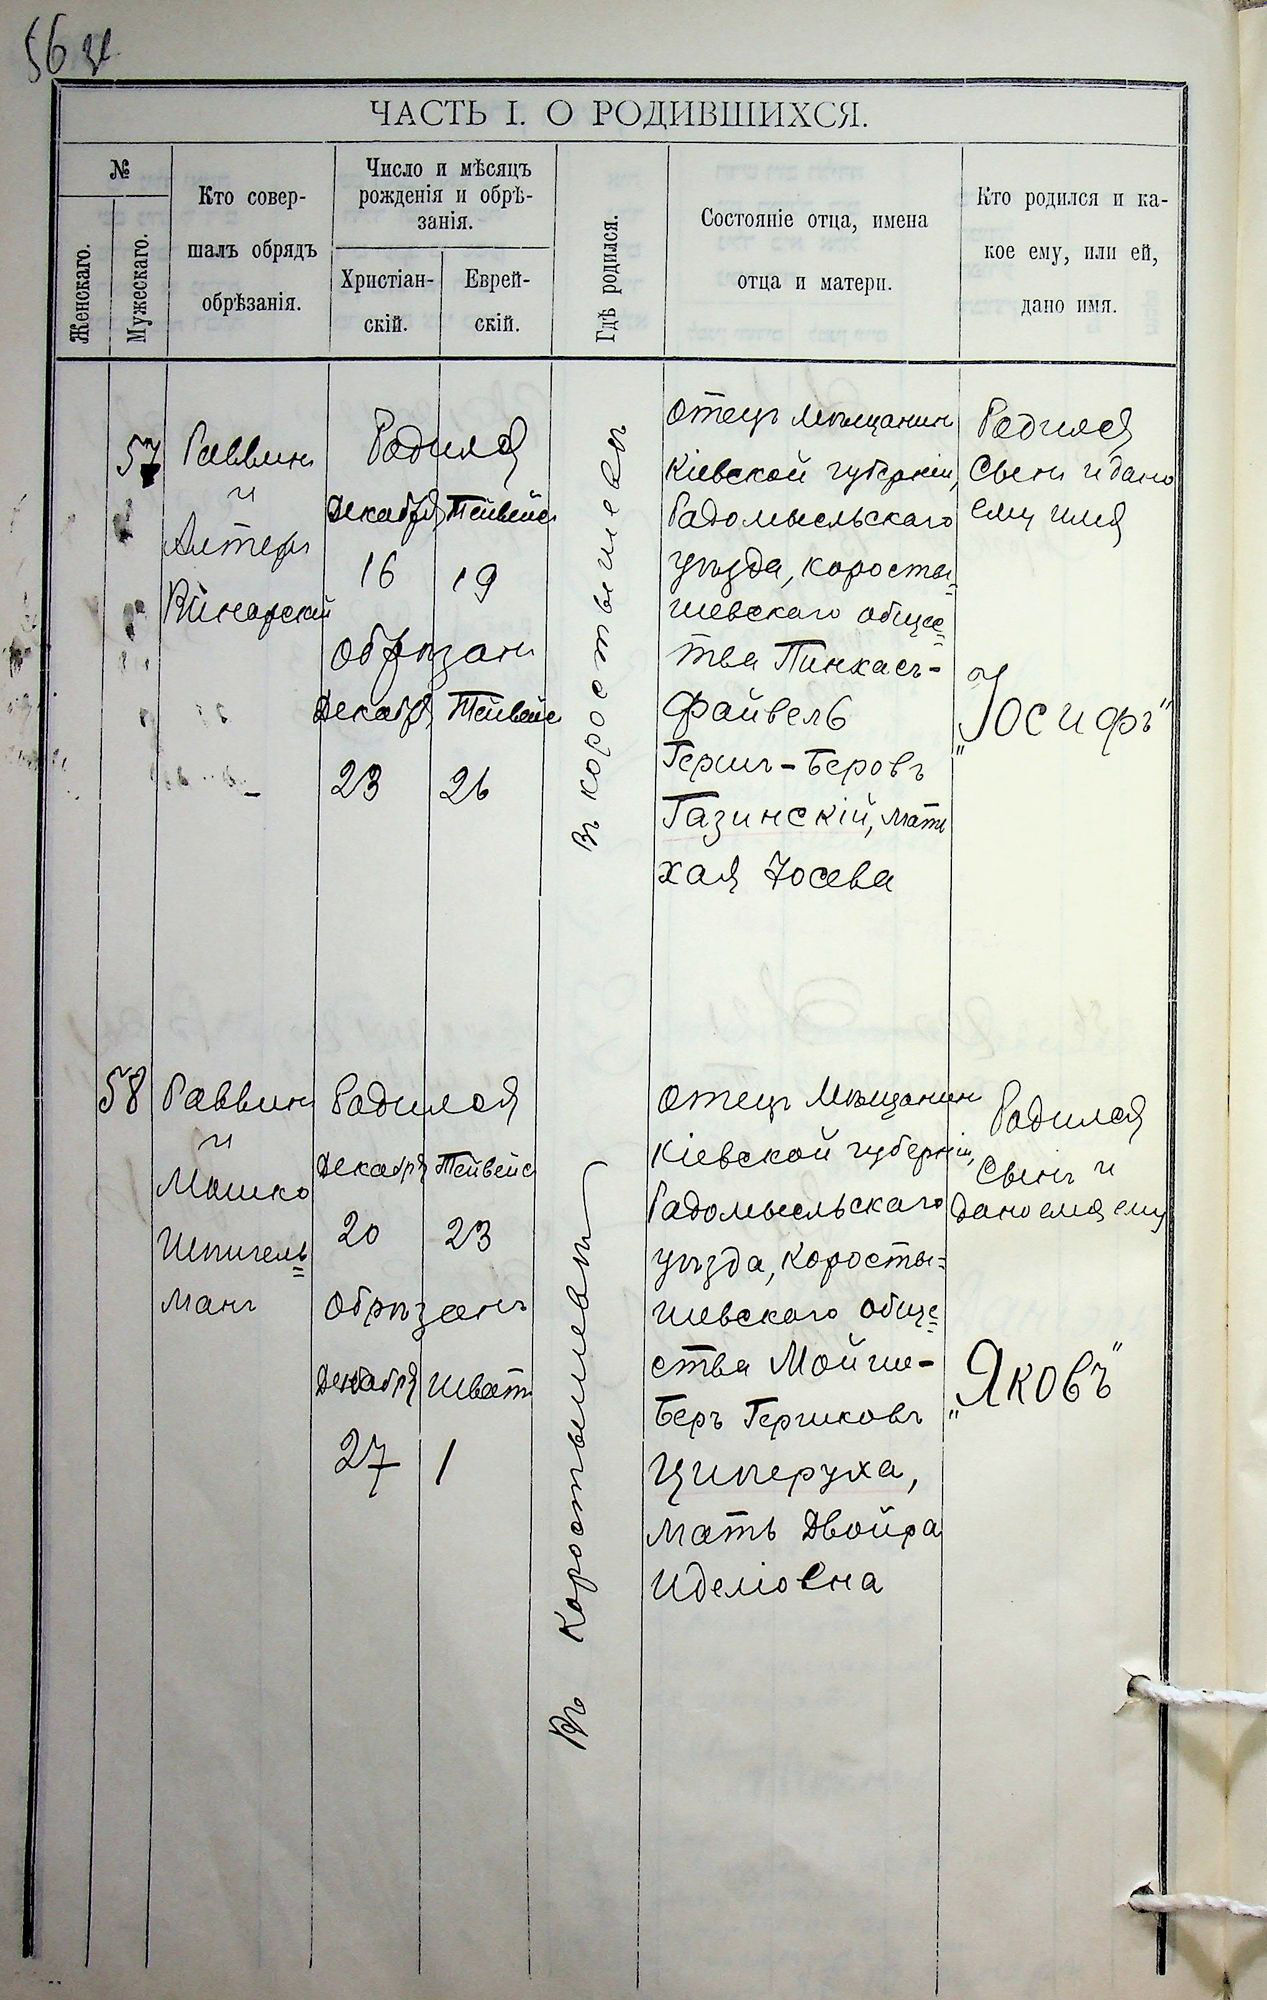 56
ЧАСТЬ I. О РОДИВШИХСЯ.
№
Женскаго.
Мужескаго.
Кто совер-
шалъ обрядъ
обрѣзанія.
Число и мѣсяцъ
рожденія и обрѣ-
занія.
Христіан-
скій.
Еврей-
скій.
Гдѣ родился.
Состояніе отца, имена
отца и матери.
Кто родился и ка-
кое ему, или ей,
дано имя.
57
Раввин
и
Алтеръ
Винарскій
Родился
Декабря Тейвейс
16 19
Обрѣзан
Декабря Тейвейс
23 26
Въ Коростышевѣ
Отецъ мѣщанин
Кіевской губерніи,
Радомысльскаго
уѣзда, Коросты=
шевскаго общес=
тва Пинхасъ-
Файвель
Гершъ-Беровъ
Газинскій, мать
Хая Іосева
Родился
Сынъ и дано
ему имя
„Іосифъ"
58
Раввин
и
Мошко
Шпигель=
манъ
Родился
Декабря Тейвейс
20 23
Обрѣзанъ
Декабря Шват
27 1
Въ Коростышевѣ
Отецъ Мѣщанин
Кіевской губерніи,
Радомысльскаго
уѣзда, Коросты=
шевскаго обще=
ства Мойше-
Беръ Гершковъ
Циперуха,
мать Двойра
Иделіовна
Родился
Сынъ и
дано ему
„Яковъ"